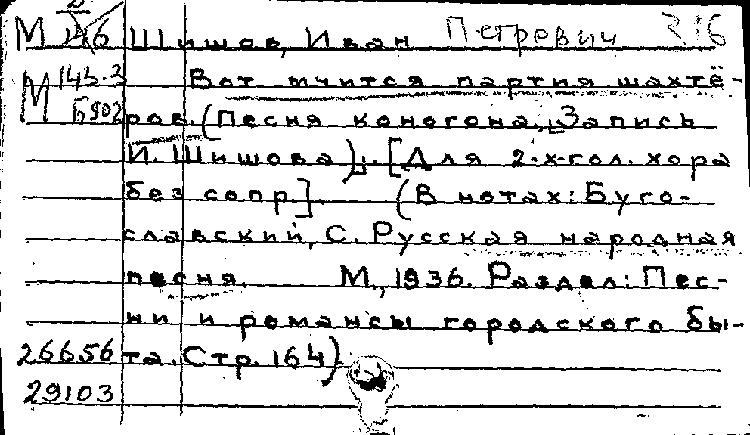 М 146 Шишов, Иван Петрович 316
М 143.3 Вот мчится партия шахтё-
Б902 ров. (Песня коногона. Запись
И. Шишова). [Для 2-х-гол. хора
без сопр]. (В нотах: Буго-
славский, С. Русская народная
песня. М., 1936. Раздел: Пес-
ни и романсы городского бы-
26656 та. Стр. 164)
29103